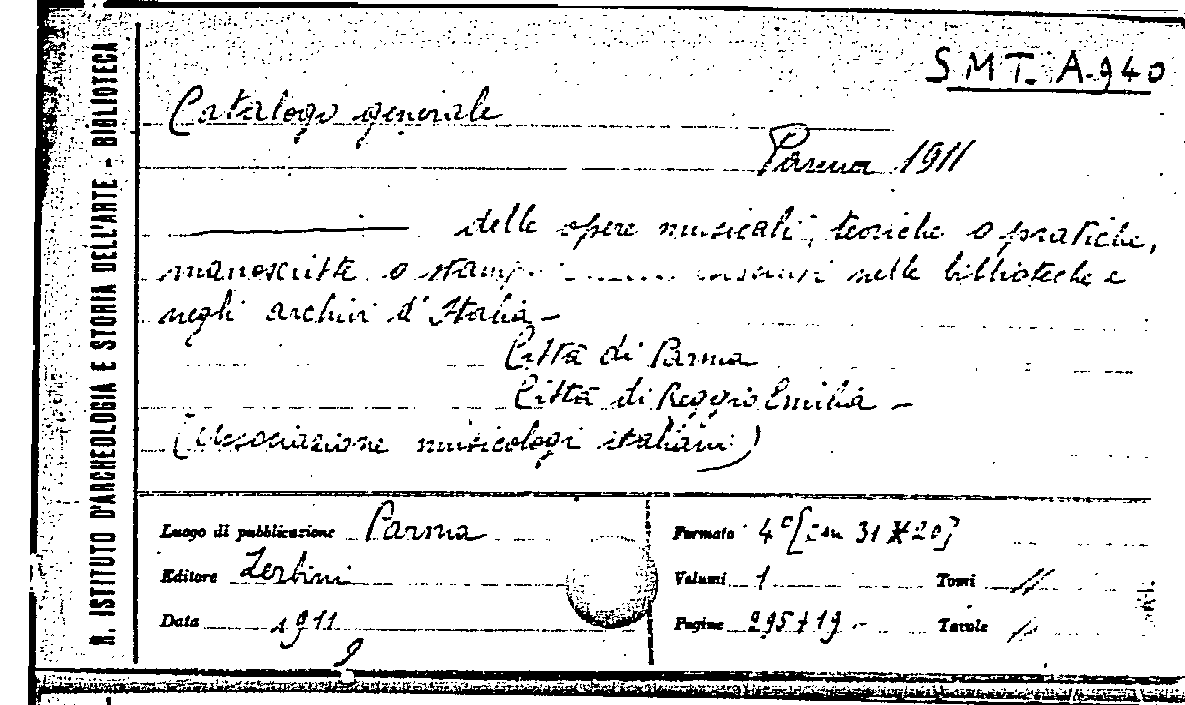 R. ISTITUTO D'ARCHEOLOGIA E STORIA DELL'ARTE - BIBLIOTECA
SMT. A.940
Catalogo generale
Parma 1911
delle opere musicali, teoriche o pratiche,
manoscritte o stampate nelle biblioteche e
negli archivi d'Italia -
Città di Parma
Città di Reggio Emilia -
(Associazione musicologi italiani)
Luogo di pubblicazione Parma
Editore Zerbini
Data 1911
Formato 4° [cm 31 x 20]
Volumi 1 Tomi //
Pagine 295+19 - Tavole //